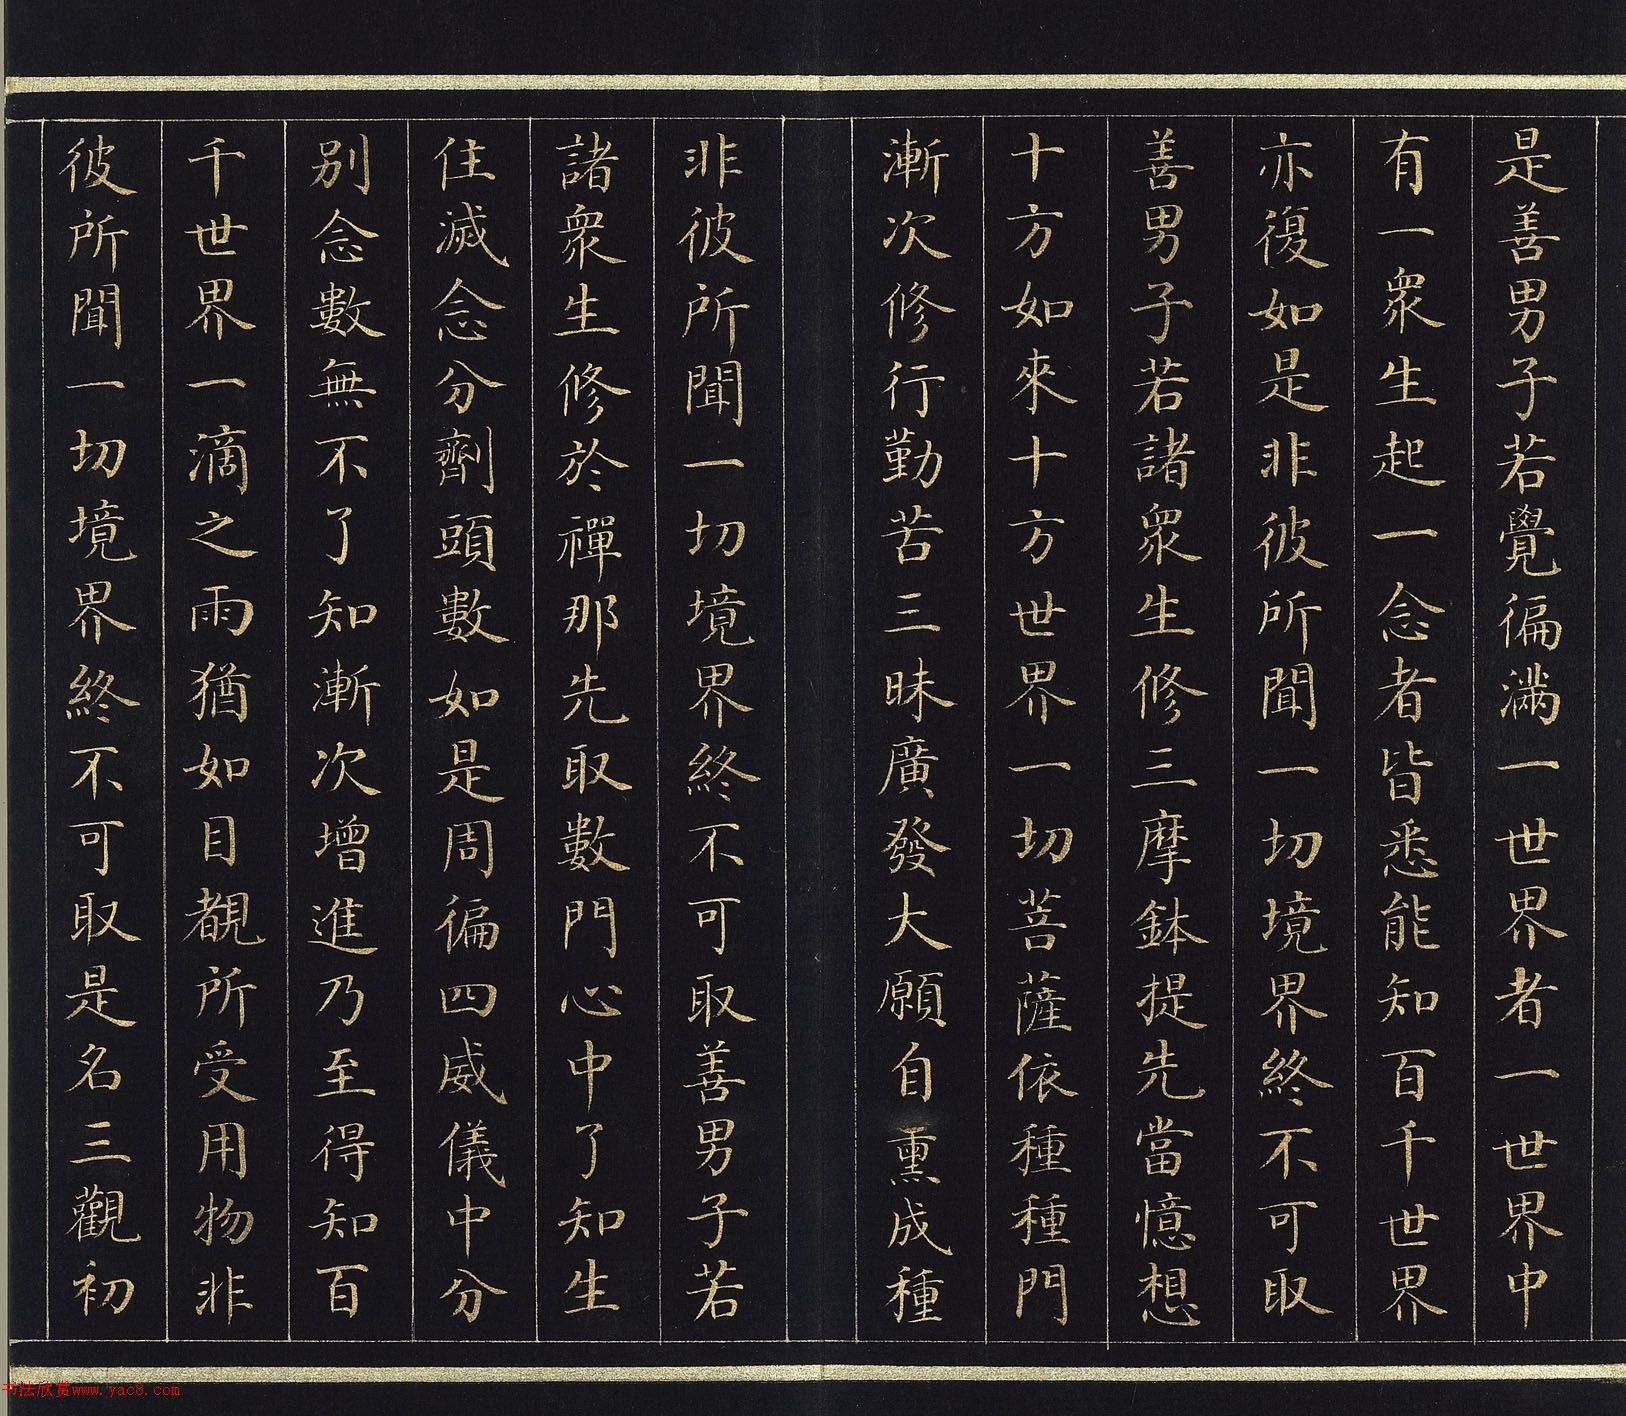 是善男子若覺徧滿一世界者一世界中
有一衆生起一念者皆悉能知百千世界
亦復如是非彼所聞一切境界終不可取
善男子若諸衆生修三摩鉢提先當憶想
十方如來十方世界一切菩薩依種種門
漸次修行勤苦三昧廣發大願自熏成種
非彼所聞一切境界終不可取善男子若
諸衆生修於禪那先取數門心中了知生
住滅念分劑頭數如是周徧四威儀中分
別念數無不了知漸次增進乃至得知百
千世界一滴之雨猶如目覩所受用物非
彼所聞一切境界終不可取是名三觀初
书法欣赏www.yac8.com